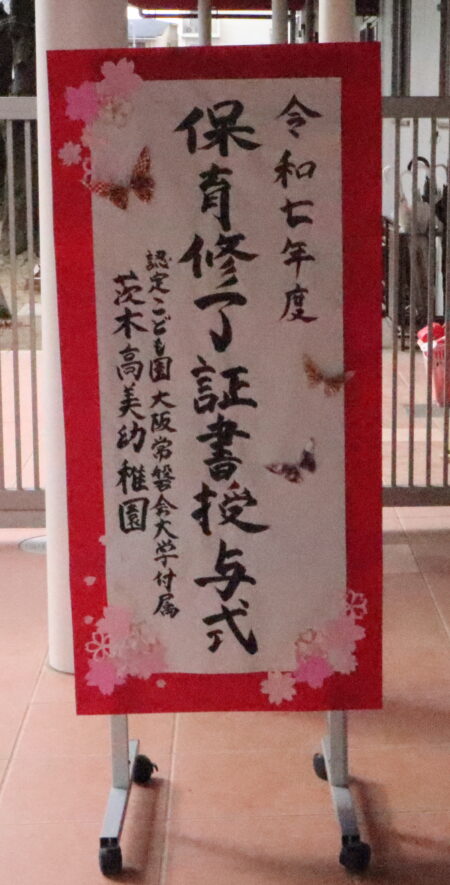 令和七年度
保育修了証書授与式
認定こども園 大阪常磐会大学付属
茨木高美幼稚園